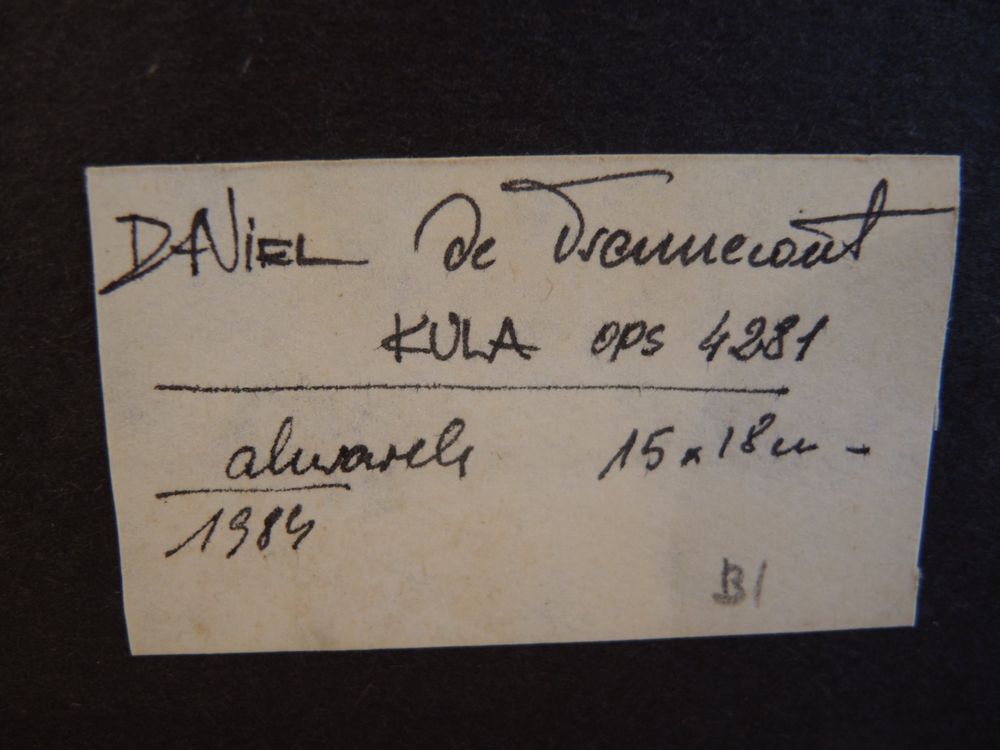 DANIEL de Tramecourt
KULA ops 4281
akwarela 15 x 18 cm -
1984
B1